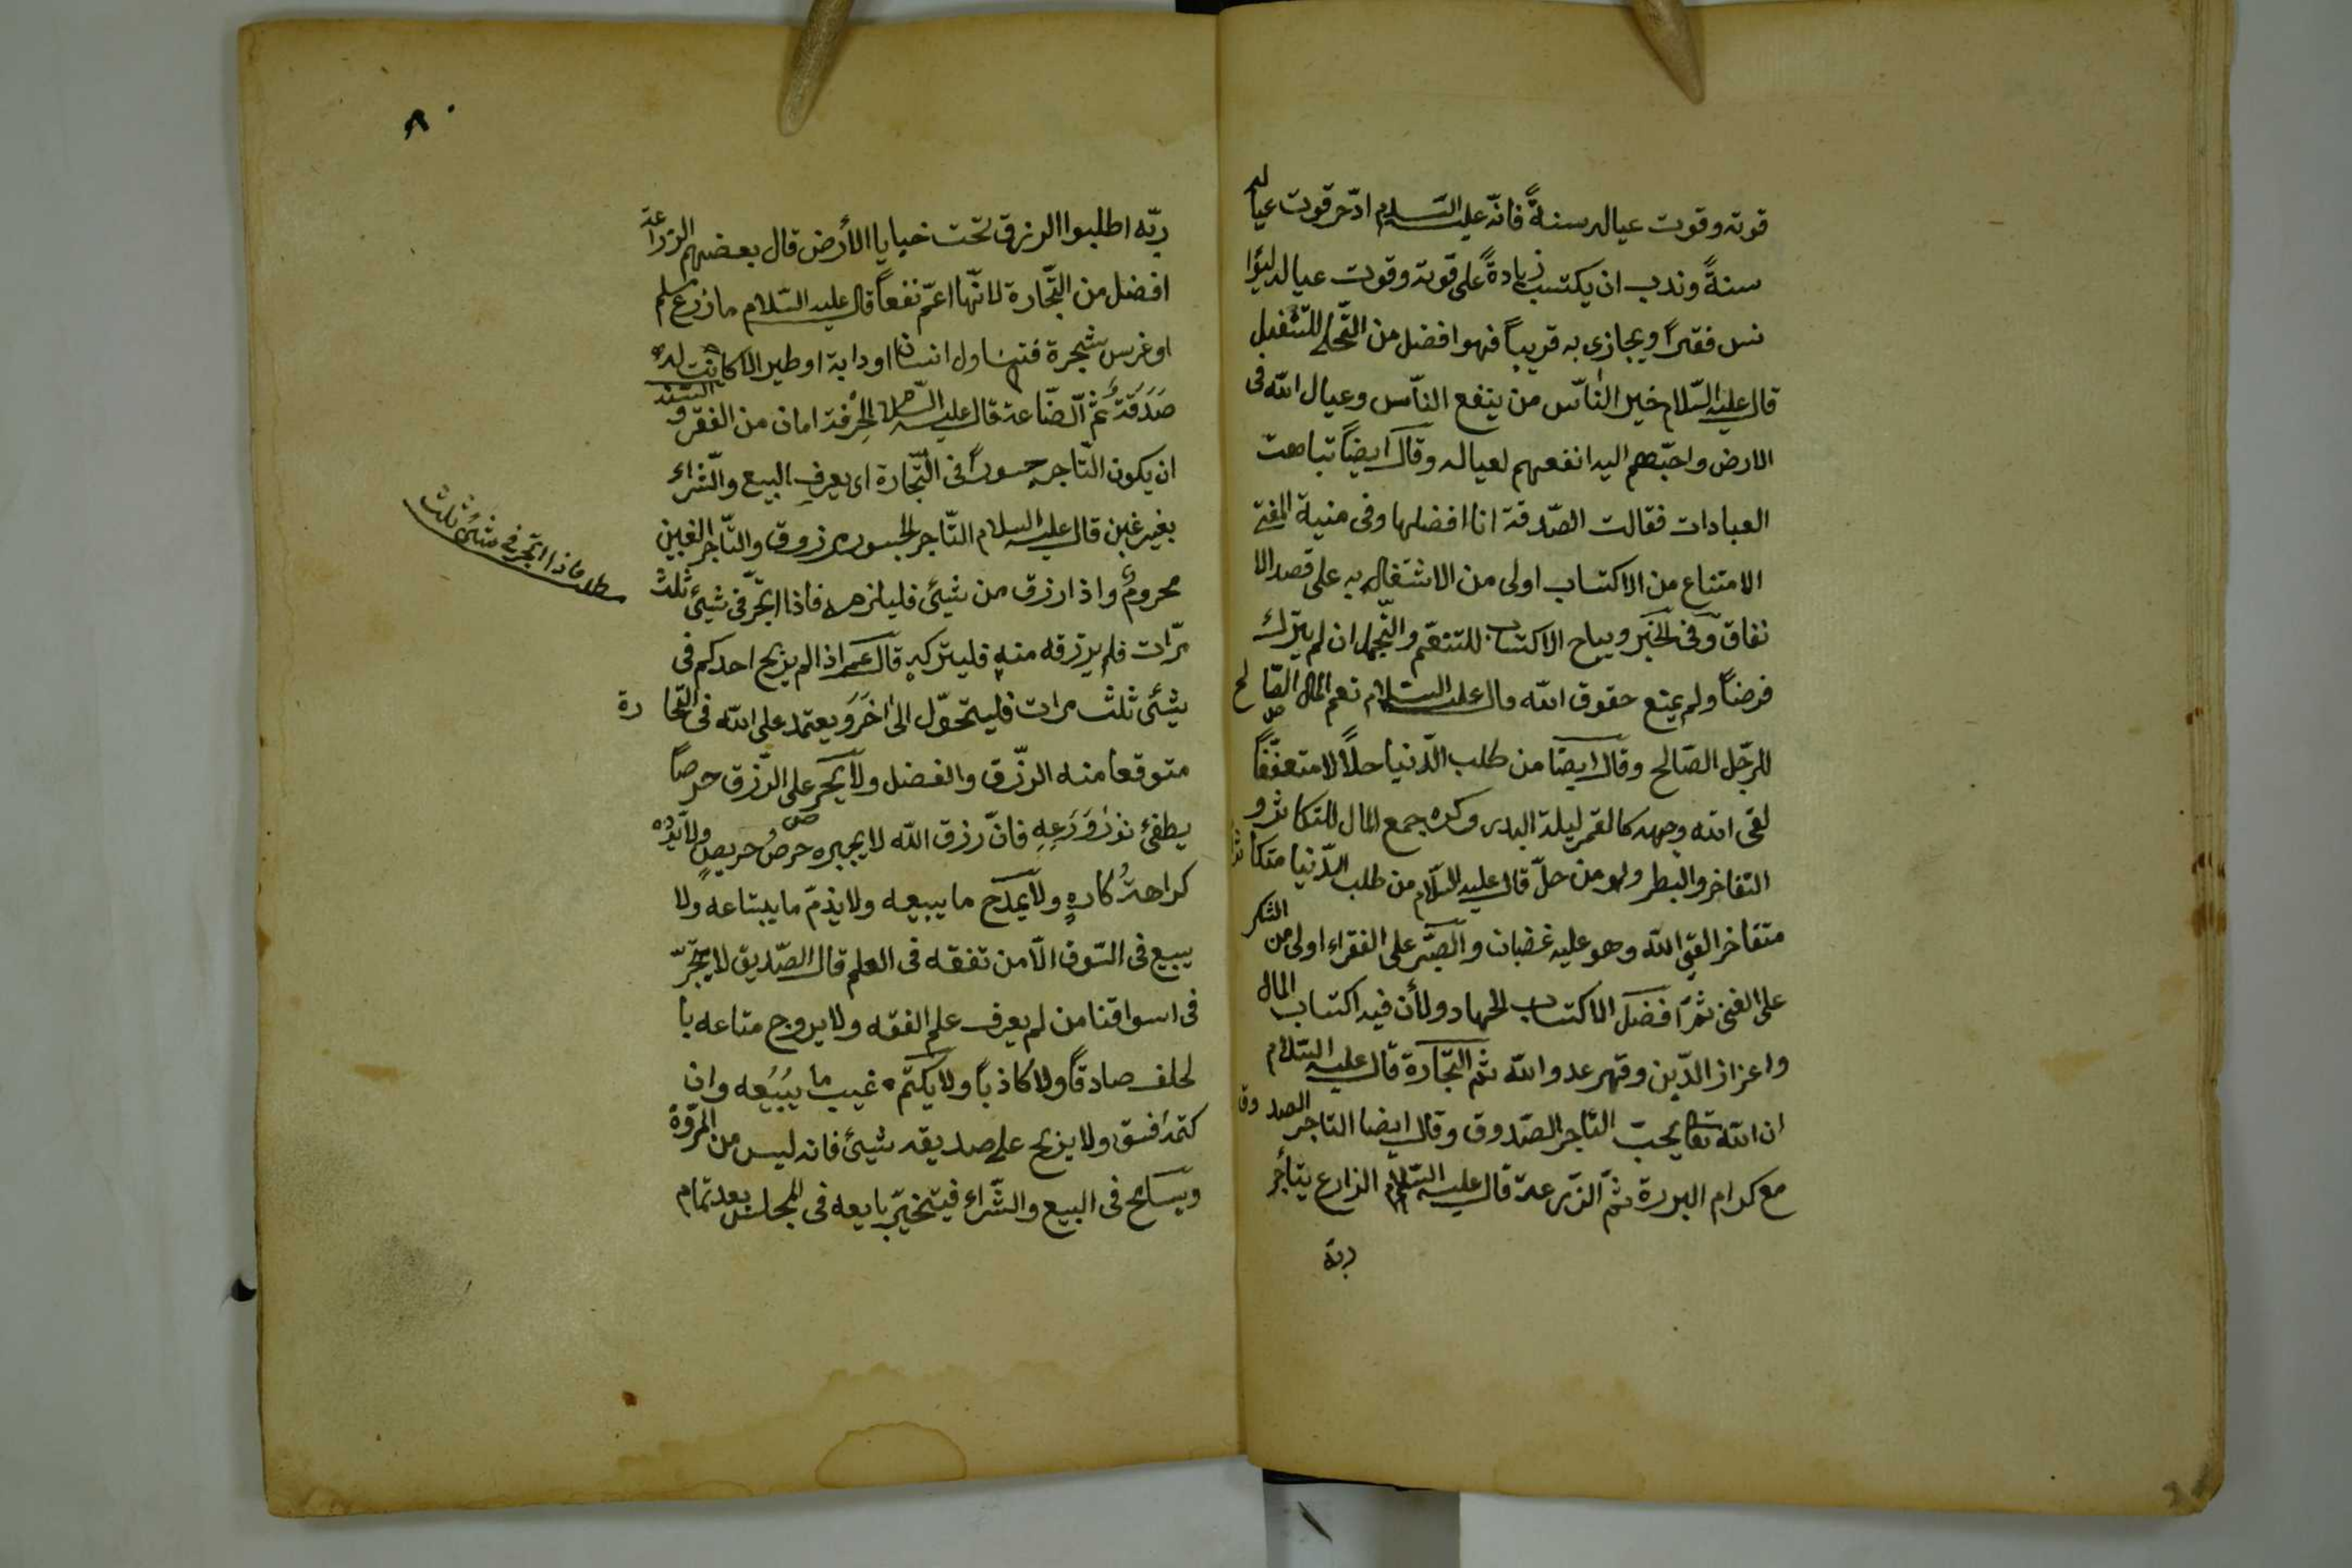 قوته وقوت عياله سنةً فانّه عليه السّلام ادّخر قوت عياله
سنةً وندب ان يكتسب زيادةً على قوته وقوت عياله ليؤا
نس فقيراً ويجازى به قريباً فهو افضل من التّخلى للتّنفيل
قال عليه السّلام خير النّاس من ينفع النّاس وعيال الله فى
الارض واحبّهم اليه انفعهم لعياله وقال ايضاً تباهت
العبادات فقالت الصّدقة انا افضلها وفى منية المفتى
الامتناع من الاكتساب اولى من الاشتغال به على قصد الا
نفاق وفى الخير ويباح الاكتساب للتنعّم والتّجمل ان لم يترك
فرضاً ولم يمنع حقوق الله قال عليه السّلام نعم المال الصّالح
للرّجل الصّالح وقال ايضا من طلب الدّنيا حلالاً متعفّفاً
لقى الله وجهه كالقمر ليلة البدر وكره جمع المال للتكاثر و
التفاخر والبطر ولو من حلّ قال عليه السّلام من طلب الدّنيا متكاثرا
متفاخرا لقى الله وهو عليه غضبان والصّبر على الفقراء اولى من الشكر
على الغنى ثمّ افضل الاكتساب الجهاد ولأن فيه اكتساب المال
واعزاز الدّين وقهر عدو الله ثم التّجارة قال عليه السّلام
ان الله تعالى يحبّ التّاجر الصّدوق وقال ايضا التاجر الصدوق
مع كرام البررة ثمّ الزّرعة قال عليه السّلام الزارع يتأجر
ربه
٨٠
ربّه اطلبوا الرزق تحت خبايا الأرض قال بعضهم الزراعة
افضل من التّجارة لانّها اعمّ نفعاً قال عليه السّلام ما زرع مسلم
او غرس شجرة فتناول انسان او دابة او طير الا كانت له
صَدَقَةٌ ثمّ الصّناعة قال عليه السّلام الحِرفة امان من الفقر و
ان يكون التّاجر جسوراً فى التّجارة اى يعرف البيع والشّراء
بغير غبن قال عليه السلام التّاجر الجسور مرزوق والتّاجر الغبين
محرومٌ واذا رزق من شيئ فليلزمه فاذا اتّجر فى شيئ ثلث
مرّات فلم يرزقه منه فليتركه قال عم اذا لم يربح احدكم فى
شيئ ثلث مرات فليتحوّل الى اخَرَ ويعتمد على الله فى التّجارة
متوقعا منه الرزّق والفضل ولا يحر على الرّزق حرصاً
يطفئ نور وَرَعِهِ فانّ رزق الله لا يجبره حرصُ حريصٍ ولا يردّه
كراهةُ كارهٍ ولا يمدح ما يبيعه ولا يذمّ ما يبتاعه ولا
يبيع فى السّوق الّا من تفقه فى العلم قال الصّديق لا يتّجر
فى اسواقنا من لم يعرف علم الفقه ولا يروج متاعه با
لحلف صادقاً ولا كاذباً ولا يكتم عيب ما يبيعه وان
كتمه افسق ولا يربح على صديقه شيئ فانه ليس من المروّة
ويسامح فى البيع والشّراء فيتخيّر بايعه فى المجلس بعد تمام
فاذا اتّجر فى شيئ ثلث